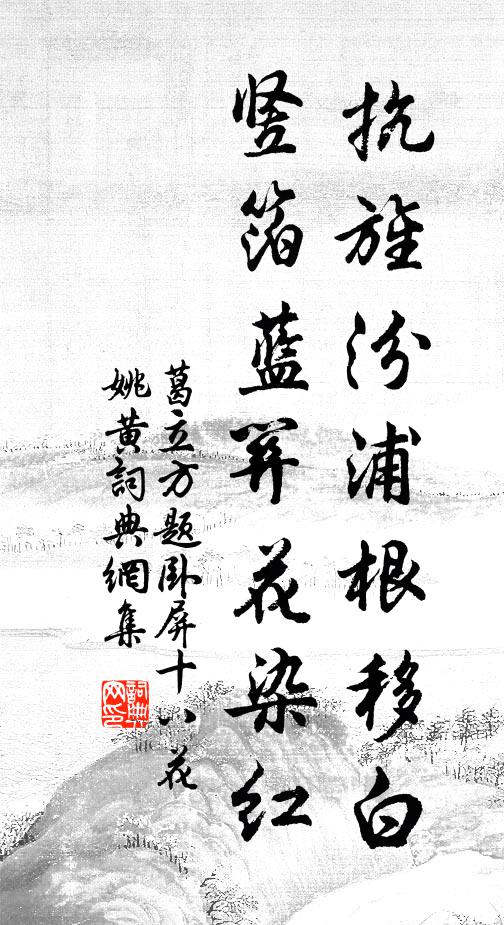 抗旌汾浦根移白
竖箔蓝关花染红
葛立方题卧屏十八花
姚黄詞典網集
詞典
网印